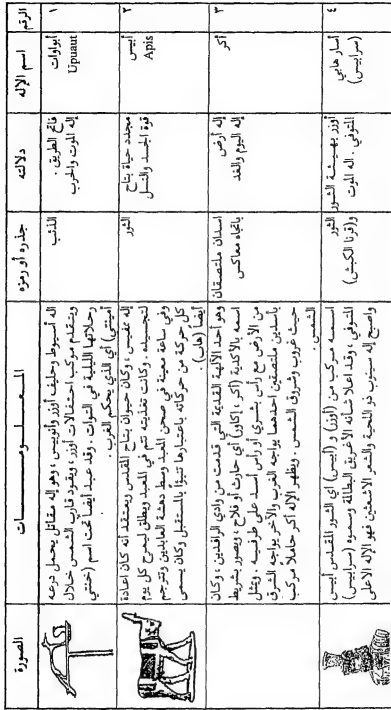 الرقم
اسم الإله
دلالته
جذره أو رمزه
المعلومات
الصورة
١
أبواوات
Upuaut
فاتح الطريق .
إله الموت والحرب
الذئب
إله أسيوط وحليف أوزر وأنوبيس ، وهو إله مقاتل يحمل درعه
ويتقدم موكب احتفالات أوزر ، ويقود قارب الشمس خلال
رحلاتها الليلية في التوات . وقد عبد أيضاً تحت اسم (خنتي
أمينتي) أي الذي يحكم الغرب .
٢
أبيس
Apis
مجدد حياة بتاح
قوة الجسد والنسل
الثور
إله ممفيس ، وكان حيوان بتاح المقدس ويعتقد أنه كان إعادة
لتجسيده . وكانت تغذيته تتم في المعبد ويطلق ليمرح كل يوم
وفي ساعة معينة في صحن المعبد وسط دهشة العابدين وتترجم
كل حركة من حركاته باعتبارها تنبؤاً بالمستقبل وكان يسمى
أيضاً (هاب) .
٣
أكر
إله أرض
إله اليوم والغد
أسدان ملتصقان
باتجاه معاكس
وهو أحد الآلهة القديمة التي قدمت من وادي الرافدين ، وكان
اسمه بالأكدية (أكر ، إكارو) أي حارث أو فلاح ، ويصور بشريط
من الأرض مع رأس بشري أو رأس أسد على طرفيه . ويمثل
بأسدين ملتصقين أحدهما يواجه الغرب والآخر يواجه الشرق
حيث غروب وشروق الشمس . ويظهر الإله أكر حاملاً مركب
الشمس .
٤
أسار هابي
(سرابيس)
أوزر بهيئة الثور
المتوفي . إله الموت
الثور
و(قرنا الكبش)
اسمه مركب من (أوزر) و (أبيس) أي الثور المقدس أبيس
المتوفي ، وقد أعلا شأنه الأغريق البطالمة وسموه (سرابيس)
وأصبح إله سينوب ذو اللحية والشعر الأشعثين فهو الإله الأعلى